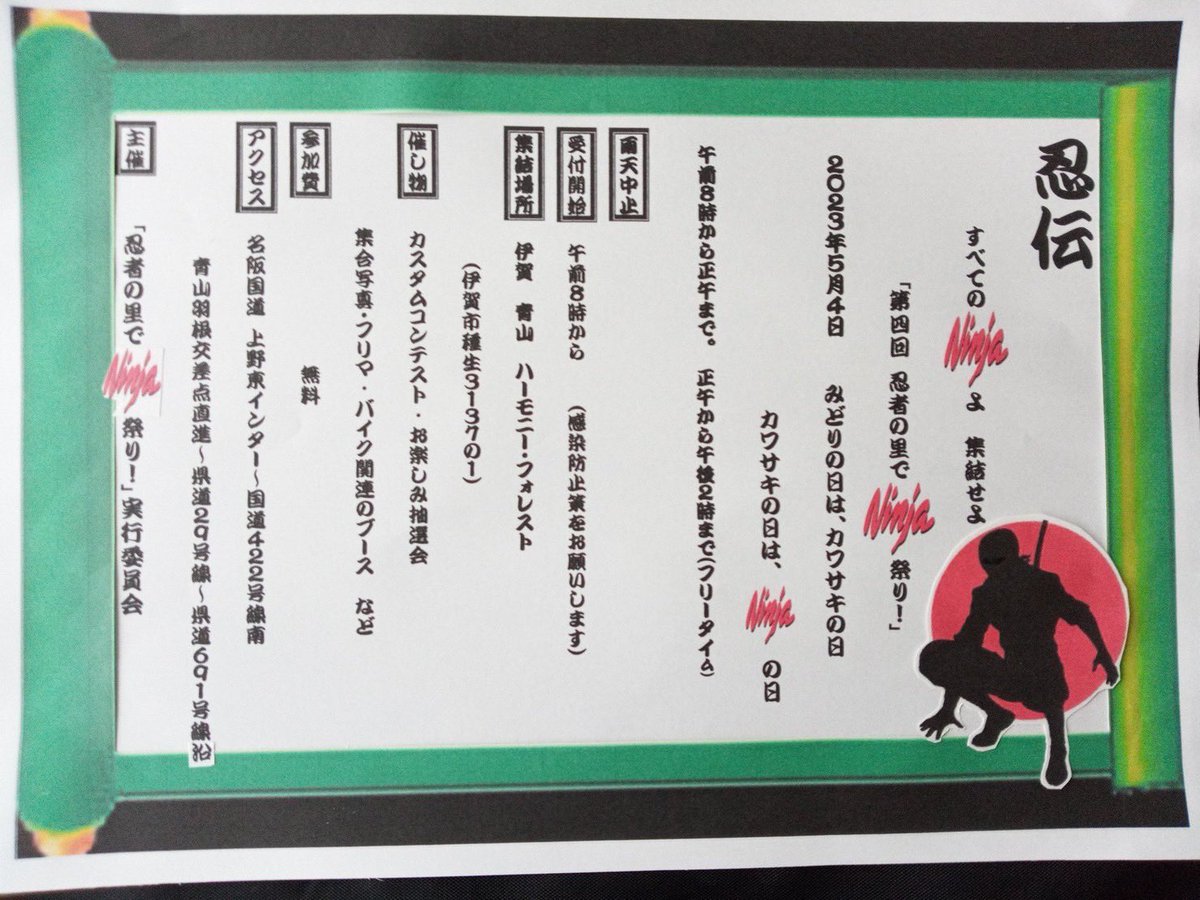 忍伝
すべての Ninja よ 集結せよ
「第四回 忍者の里で Ninja 祭り！」
2023年5月4日 みどりの日は、カワサキの日
カワサキの日は、 Ninja の日
午前8時から正午まで。 正午から午後2時まで(フリータイム)
雨天中止
受付開始 午前8時から (感染防止策をお願いします)
集結場所 伊賀 青山 ハーモニー・フォレスト
(伊賀市種生3137の1)
催し物 カスタムコンテスト・お楽しみ抽選会
集合写真・フリマ・バイク関連のブース など
参加費 無料
アクセス 名阪国道 上野東インター〜国道422号線南
青山羽根交差点直進〜県道29号線〜県道691号線沿
主催 「忍者の里で Ninja 祭り！」実行委員会